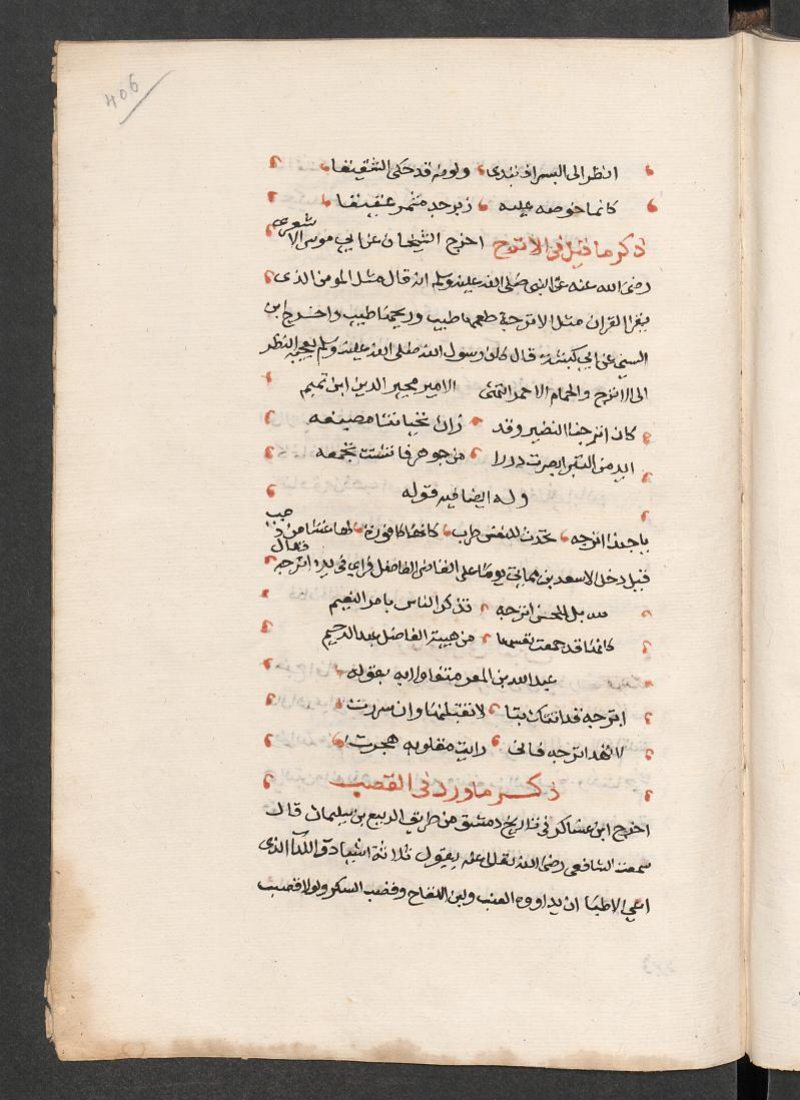 406
انظر الى البسر اذ تبدى ولونه قد حكى الشقيقا
كانما خوصه عليه زبرجد مثمر عقيقا
ذكر ما قيل في الاترج اخرج الشيخان عن ابي موسى الاشعري
رضى الله عنه عن النبي صلى الله عليه وسلم انه قال مثل المومن الذى
يقرا القران مثل الاترجة طعمها طيب وريحها طيب واخرج ابن
السني عن ابي كبشة قال كان رسول الله صلى الله عليه وسلم يعجبه النظر
الى الاترج والحمام الاحمر الامير مجير الدين ابن تميم
كان اترجنا النضير وقد زان تحياتنا مصبغه
ايد من التبر ابصرت دررا من جوهر فانثنت تجمعه
وله ايضا فيه قوله
ياحبذا اترجه تحدث للنفس طرب كانها كافورة لها غشا من ذهب
قيل دخل الاسعد بن مماتي يوما على القاضى الفاضل فراي في يده اترجه فقال
لله بل للحسن اترجه تذكر الناس بامر النعيم
كانها قد جمعت نفسها من هيبة الفاضل عبد الرحيم
عبد الله بن المعز متفاولا به بقوله
اترجه قد اتتك بتا لا تقبلنها وان سررت
لا تهد اترجه فانى رايت مقلوبه هجرت
ذكر ما ورد في القصب
اخرج ابن عساكر في تاريخ دمشق من طريق الربيع بن سليمان قال
سمعت الشافعي رضى الله تعالى عنه يقول ثلاثة اشيا دوا للدا الذى
اعي الاطبا ان يداووه العنب ولبن اللقاح وقصب السكر ولولا قصب